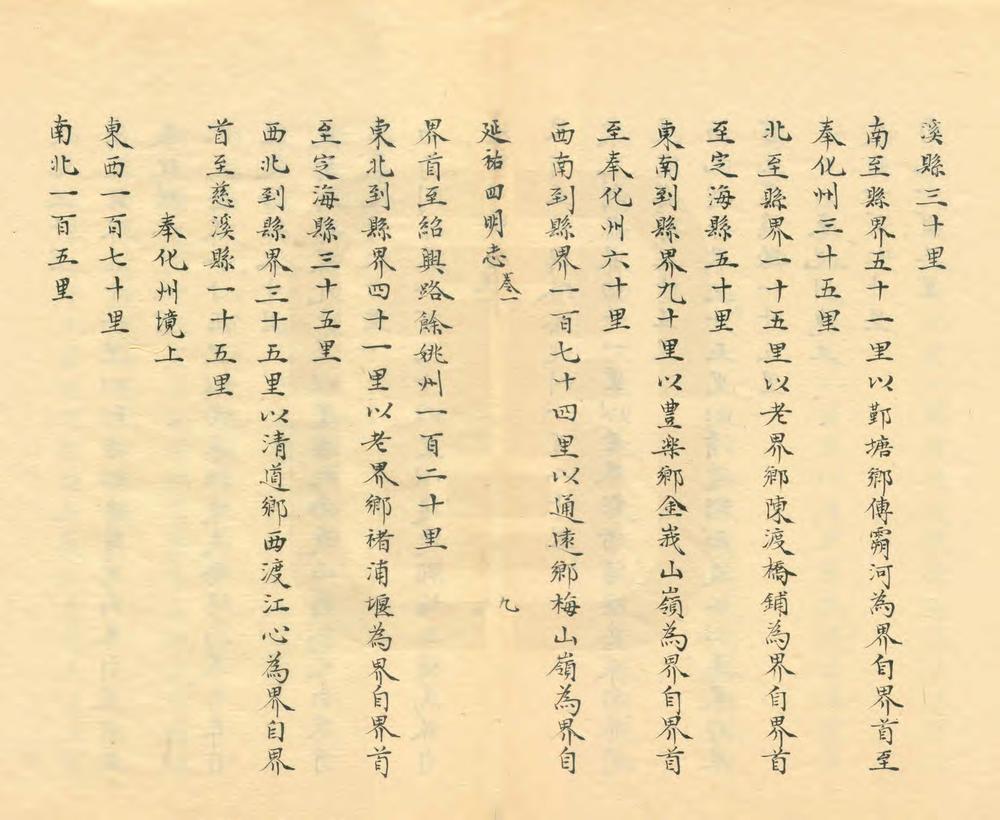 溪縣三十里
南至縣界五十一里以鄞塘鄉傅霸河為界自界首至
奉化州三十五里
北至縣界一十五里以老界鄉陳渡橋鋪為界自界首
至定海縣五十里
東南到縣界九十里以豐樂鄉金峩山嶺為界自界首
至奉化州六十里
西南到縣界一百七十四里以通遠鄉梅山嶺為界自
延祐四明志 卷一 九
界首至紹興路餘姚州一百二十里
東北到縣界四十一里以老界鄉褚浦堰為界自界首
至定海縣三十五里
西北到縣界三十五里以清道鄉西渡江心為界自界
首至慈溪縣一十五里
奉化州境上
東西一百七十里
南北一百五里